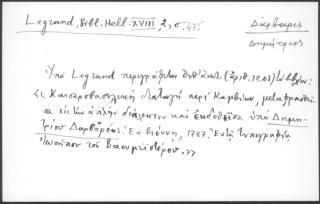 Legrand, Bibl. Hell. XVIII, 2, σ. 475
Δάρβαρις
Δημήτριος
Ὑπὸ Legrand περιγράφεται (ἀριθ. 1201) :
<< Καισαροβασιλικὴ διαταγὴ περὶ Καμβίων, μεταφρασθεῖ-
σα εἰς τὴν ἁπλῆν διάλεκτον καὶ ἐκδοθεῖσα ὑπὸ Δημη-
τρίου Δαρβάρεως. Ἐν Βιέννῃ, 1787. Ἐν τῇ τυπογραφίᾳ
Ἰωσήπου τοῦ Βαουμεϊστέρου. >>